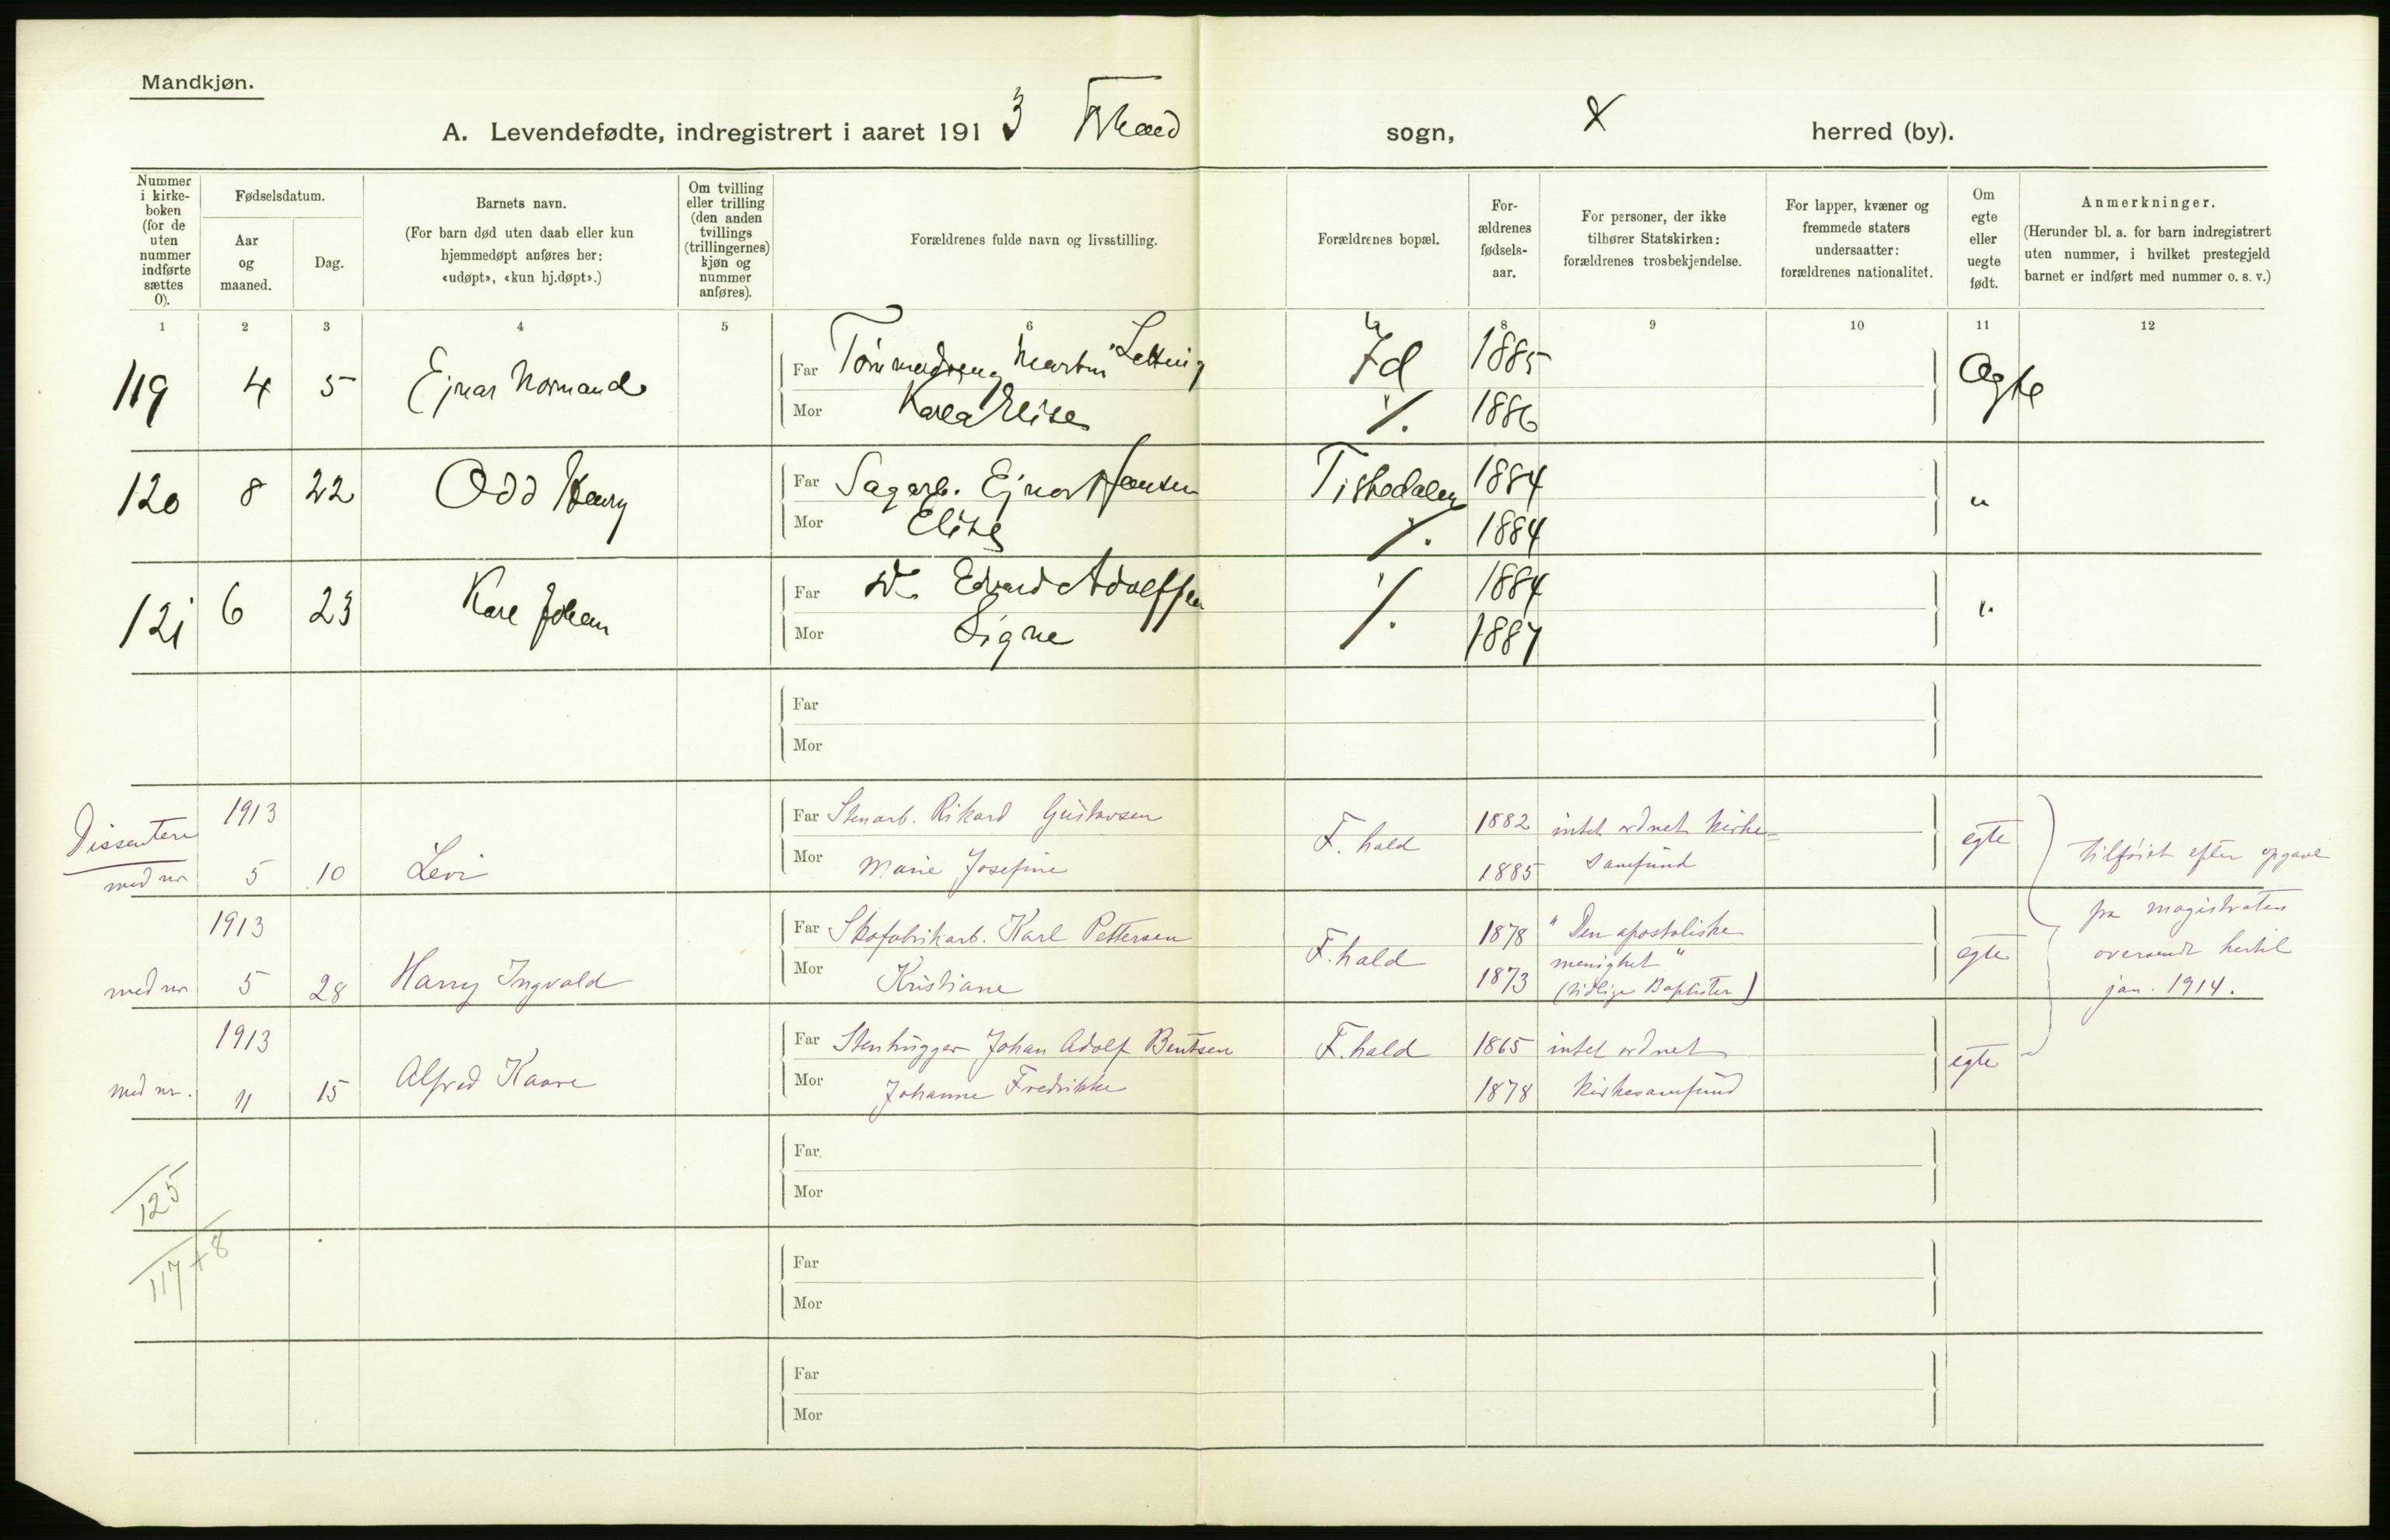 Mandkjøn.
A. Levendefødte, indregistrert i aaret 1913 Fr.hald sogn, herred (by).
Nummer i kirke-boken (for de uten nummer indførte sættes 0).
Fødselsdatum.
Aar og maaned.
Dag.
Barnets navn.
(For barn død uten daab eller kun hjemmedøpt anføres her: «udøpt», «kun hj.døpt».)
Om tvilling eller trilling (den anden tvillings (trillingernes) kjøn og nummer anføres).
Forældrenes fulde navn og livsstilling.
Forældrenes bopæl.
For-ældrenes fødsels-aar.
For personer, der ikke tilhører Statskirken: forældrenes trosbekjendelse.
For lapper, kvæner og fremmede staters undersaatter: forældrenes nationalitet.
Om egte eller uegte født.
Anmerkninger.
(Herunder bl. a. for barn indregistrert uten nummer, i hvilket prestegjeld barnet er indført med nummer o. s. v.)
1 2 3 4 5 6 7 8 9 10 11 12
119 4 5 Ejnar Normand Far Martin Id 1885 Ægte
Mor Karla Elise 1886
120 8 22 Odd Henry Far Sagarb. Ejnar Hansen Tistedalen 1884 "
Mor Elise 1884
121 6 23 Karl Johan Far Do Edvard Adolfsen 1884 "
Mor Signe 1887
Far
Mor
Dissentere 1913 Far Stenarb. Rikard Gustavsen F. hald 1882 intet ordnet kirke= egte
med nr 5 10 Levi Mor Marie Josefine 1885 samfund
tilføiet efter opgave
fra magistraten
oversendt hertil
jan. 1914.
1913 Far Skofabrikarb. Karl Pettersen F. hald 1878 "Den apostoliske egte
med nr 5 28 Harry Ingvald Mor Kristiane 1873 menighet"
(tidlige Baptister)
1913 Far Stenhugger Johan Adolf Bentsen F. hald 1865 intet ordnet egte
med nr. 11 15 Alfred Kaare Mor Johanne Fredrikke 1878 kirkesamfund
Far
Mor
125
Far
Mor
117+8
Far
Mor